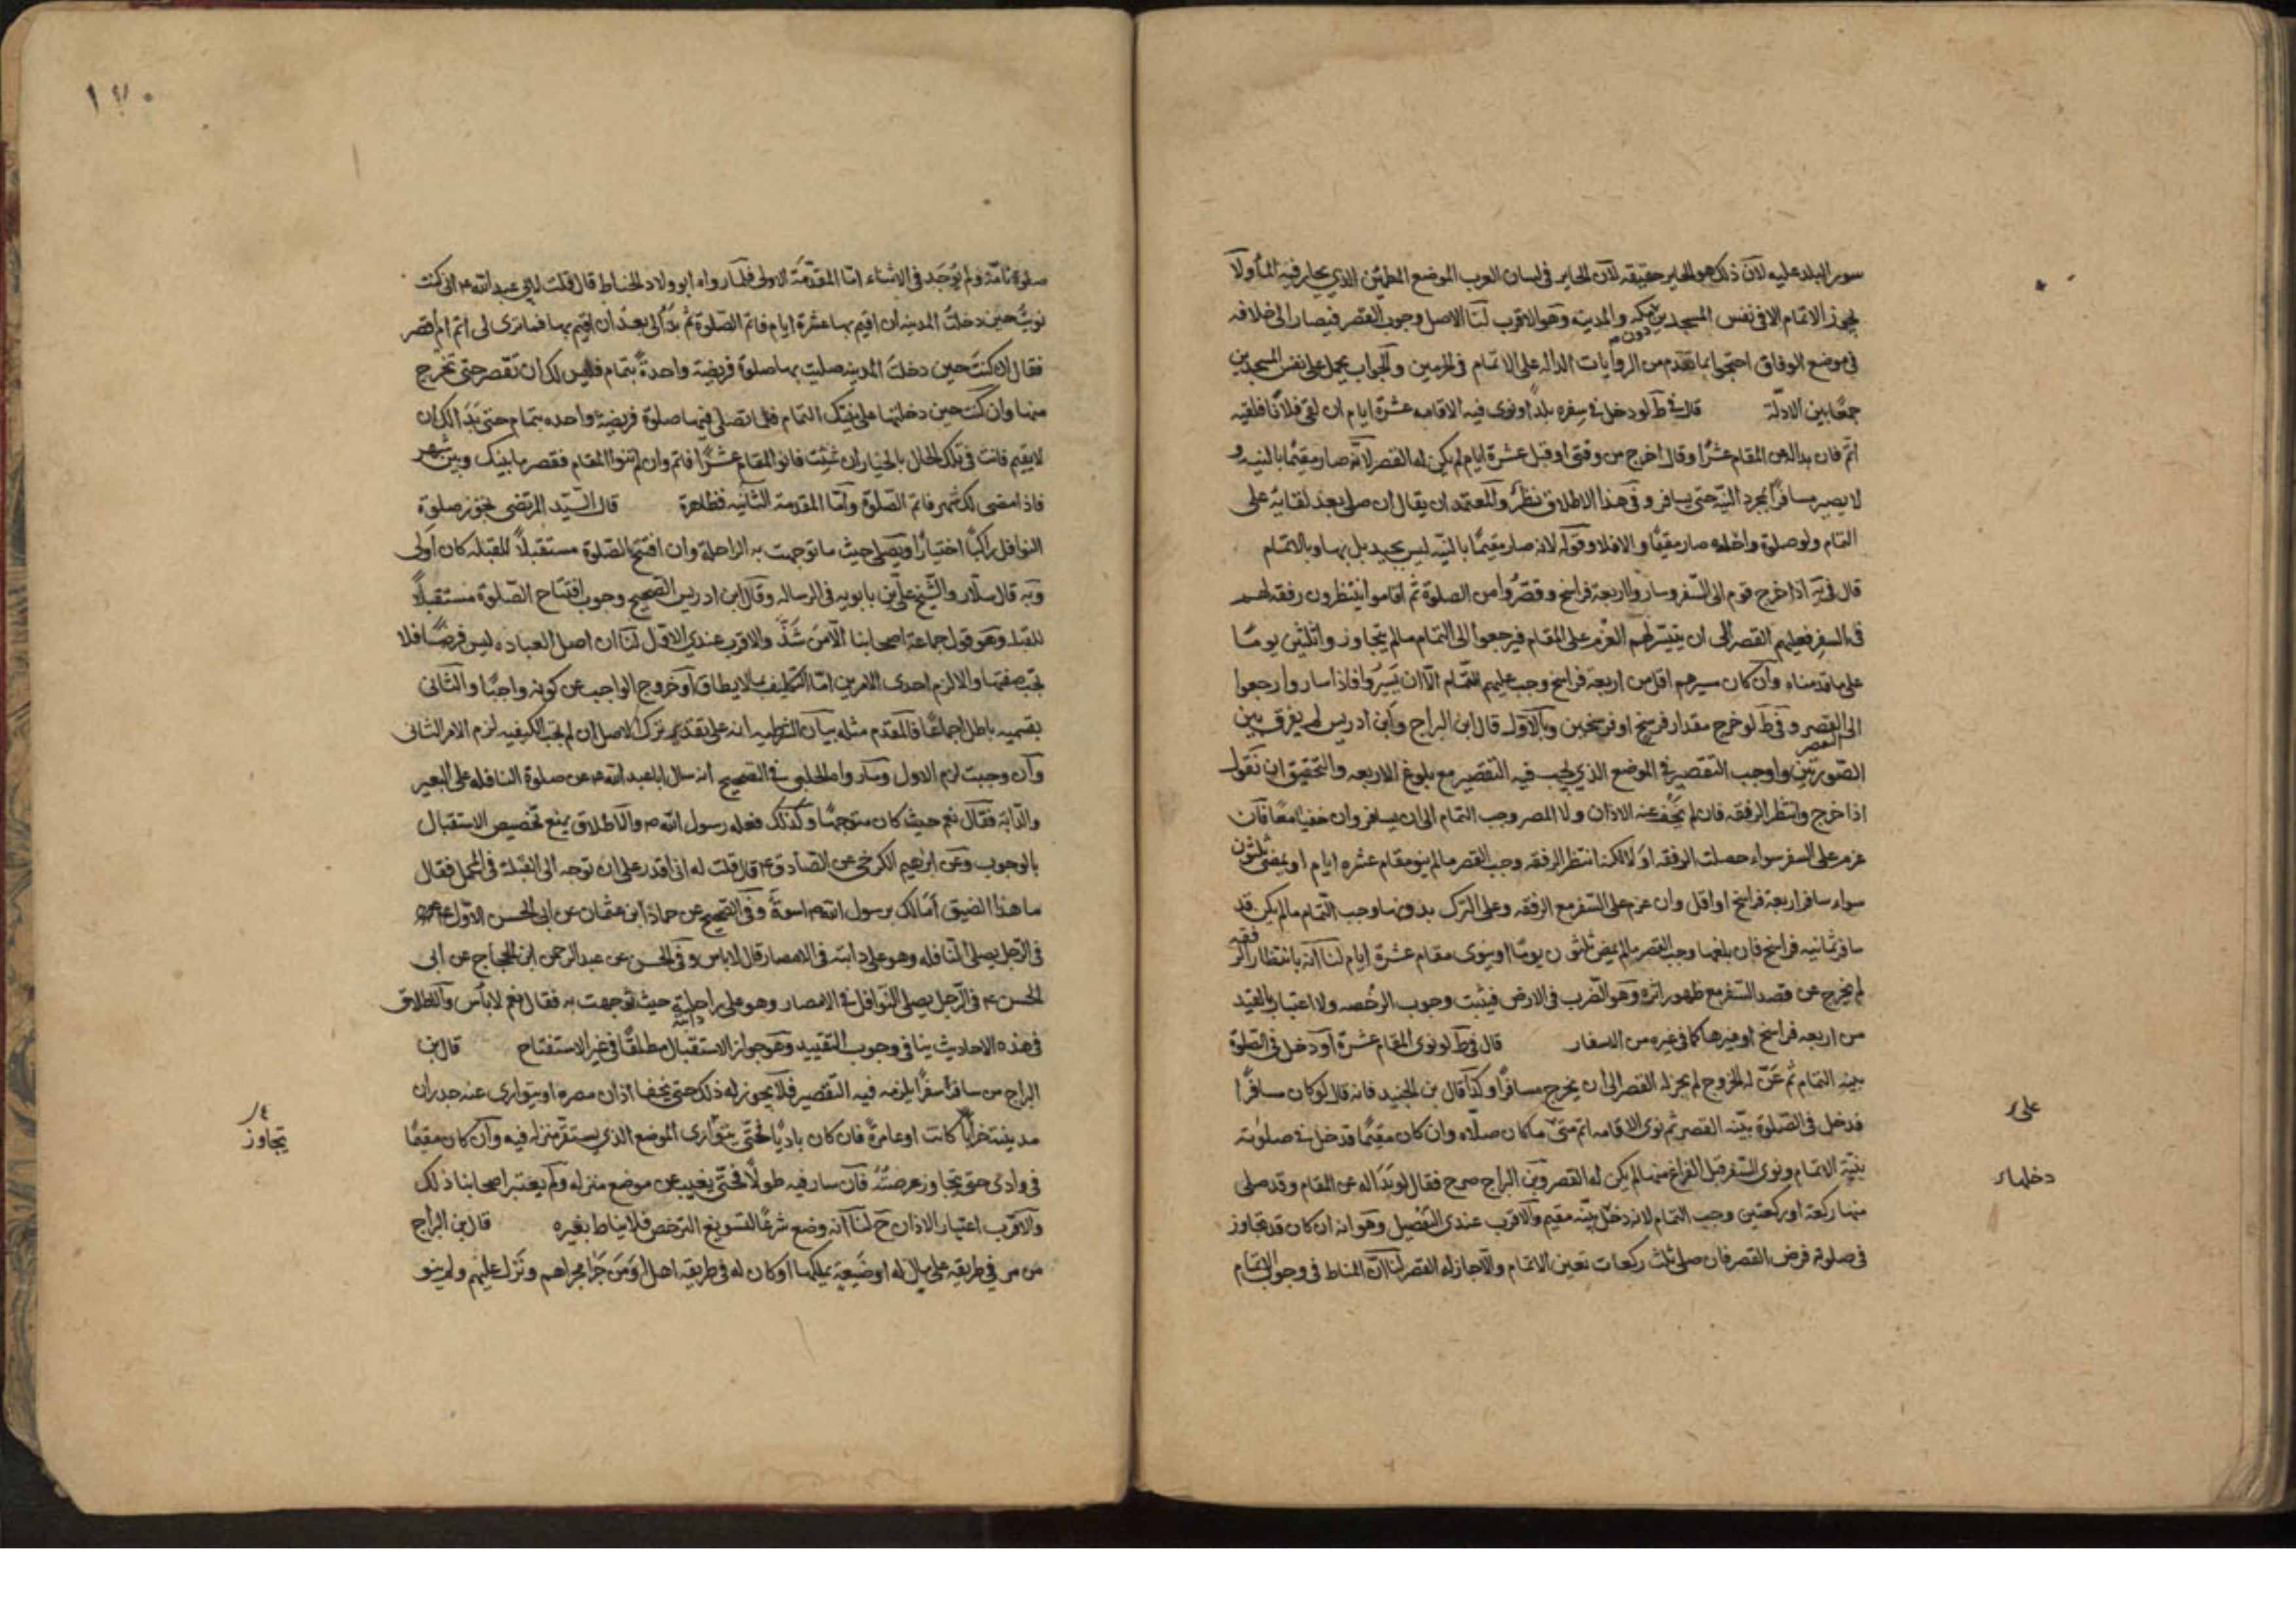 سور البلد عليه لان ذلك هو الحاير حقيقه لان الحاير في لسان العرب الموضع المطمئن الذي يحار فيه الماء ولا
يجوز الاتمام الا في نفس المسجدين مكه والمدينه دون م وهو الاقرب لنا الاصل وجوب القصر فيصار الى خلافه
في موضع الوفاق احتجوا بما تقدم من الروايات الداله على الاتمام في الحرمين والجواب يحمل على نفس المسجدين
جمعًا بين الادلة قال في ط لو دخل في سفره بلدًا ونوى فيه الاقامه عشرة ايام ان لقى فلانًا فلقيه
اتم فان بدا له عن المقام عشرًا وقال اخرج من وقتي او قبل عشرة ايام لم يكن له القصر لانه صار مقيمًا بالنيه و
لا يصير مسافرًا بمجرد النية حتى يسافر وفي هذا الاطلاق نظر والمعتمد ان يقال ان صلى بعد لقائه على
التمام ولو صلوة واحده صار مقيمًا والا فلا وقوله لانه صار مقيمًا بالنيه ليس بجيد بل بها وبالاتمام
قال في يه اذا خرج قوم الى السفر وساروا اربعة فراسخ وقصروا من الصلوة ثم اقاموا ينتظرون رفقه لهم
في السفر فعليهم القصر الى ان يتيسر لهم العزم على المقام فيرجعوا الى التمام ما لم يتجاوزوا ثلثين يومًا
على ما قدمناه وان كان سيرهم اقل من اربعة فراسخ وجب عليهم التمام الا ان يسيروا فاذا ساروا رجعوا
الى القصر وفي ط لو خرج مقدار فرسخ او فرسخين وبالاول قال ابن البراج وابن ادريس لم يفرق بين
الصورتين واوجب التقصير في الموضع الذي يجب فيه التقصير مع بلوغ الاربعه والتحقيق ان نقول
اذا خرج وانتظر الرفقه فان لم يخف عنه الاذان ولا المصر وجب التمام الى ان يسافر وان خفيا معًا فان
عزم على السفر سواء حصلت الرفقه او لا لكنه انتظر الرفقه وجب القصر ما لم ينو مقام عشره ايام او يمضي ثلثون
سواء سافر اربعة فراسخ او اقل وان عزم على السفر مع الرفقه وعلى الترك بدونها وجب التمام ما لم يكن قد
سافر ثمانيه فراسخ فان بلغها وجب القصر ما لم يمض ثلثون يومًا او ينوى مقام عشرة ايام لنا انه بانتظار الرفقه
لم يخرج عن قصد السفر مع ظهور اثره وهو الضرب في الارض فيثبت وجوب الرخصه ولا اعتبار بالقيد
من اربعه فراسخ او غيرها كما في غيره من الاسفار قال في ط لو نوى المقام عشرة او دخل في الصلوة
بنيه التمام ثم عنّ له الخروج لم يجز له القصر الى ان يخرج مسافرًا وكذا قال بن الجنيد فانه قال لو كان مسافرًا
فدخل في الصلوة بنيه القصر ثم نوى الاقامه اتم متى ما كان صلاه وان كان مقيمًا قد دخل في صلوته
بنيّة الاتمام ونوى السفر قبل الفراغ منها لم يكن له القصر وبن البراج صرح فقال لو بدا له عن المقام وقد صلى
منها ركعة او ركعتين وجب التمام لانه دخل بنيه مقيم والاقرب عندي التفصيل وهو انه ان كان قد تجاوز
في صلوته فرض القصر فان صلى ثلث ركعات تعين الاتمام والا جاز له القصر لنا ان المناط في وجوب الاتمام
على
دخلها
١٧٠
صلوة تامة ولم يوجد في الاثناء اما المقدمة الاولى فلما رواه ابو ولاد الحناط قال قلت لابي عبد الله ع اني كنت
نويت حين دخلت المدينه ان اقيم بها عشرة ايام فاتم الصلوة ثم بدا لي بعد ان اقيم بها فما ترى لي اتم ام اقصر
فقال ان كنت حين دخلت المدينه صليت بها صلوة فريضة واحدة بتمام فليس لك ان تقصر حتى تخرج
منها وان كنت حين دخلتها على نيتك التمام فلم تصل فيها صلوة فريضة واحده بتمام حتى بدا لك ان
لا يقيم فانت في تلك الحال بالخيار ان شئت فانو المقام عشرًا فاتم وان لم تنوا المقام فقصر ما بينك وبين شهر
فاذا مضى لك شهر فاتم الصلوة واما المقدمة الثانيه فظاهرة قال السيد المرتضى يجوز صلوة
النوافل راكبًا اختيارًا ويصلى حيث ما توجهت به الراحلة وان افتتح الصلوة مستقبلاً للقبله كان اولى
وبه قال سلار والشيخ على بن بابويه في الرساله وقال ابن ادريس الصحيح وجوب افتتاح الصلوة مستقبلاً
للقبله وهو قول جماعة اصحابنا الا من شذّ والاقرب عندي الاول لنا ان اصل العباده ليس فرضًا فلا
تجب صفتها والا لزم احدى الامرين اما التكليف بما لا يطاق او خروج الواجب عن كونه واجبًا والثاني
بقسميه باطل اجماعًا فالمقدم مثله بيان الشرطيه انه على تقدير ترك الاصل ان لم تجب الكيفيه لزم الامر الثاني
وان وجبت لزم الاول وما رواه الحلبي في الصحيح انه سال ابا عبد الله ع عن صلوة النافله على البعير
والدابة فقال نعم حيث كان متوجهًا وكذلك فعله رسول الله ص والاطلاق يمنع تخصيص الاستقبال
بالوجوب وعن ابرهيم الكرخي عن الصادق ع قال قلت له اني اقدر على ان توجه الى القبلة في المحمل فقال
ما هذا الضيق اما لك برسول الله ص اسوة وفي الصحيح عن حماد ابن عثمان عن ابي الحسن الاول ع
في الرجل يصلى النافله وهو على دابته في الامصار قال لا باس وفي الحسن عن عبد الرحمن ابن الحجاج عن ابي
الحسن ع في الرجل يصلى النوافل في الامصار وهو على راحلته دابته حيث توجهت به فقال نعم لا باس والاطلاق
في هذه الاحاديث ينافى وجوب التقييد وهو جواز الاستقبال مطلقًا في غير الاستفتاح قال بن
البراج من سافر سفرًا يلزمه فيه التقصير فلا يجوز له ذلك حتى يخفا اذان مصره او يتوارى عنه جدران
مدينته خرابًا كانت او عامرةً فان كان باديًا فحتى يتوارى الموضع الذي يستقر منزله فيه وان كان مقيمًا
في وادى حتى يتجاوز عرضته فان سار فيه طولًا فحتى يغيب عن موضع منزله ولم يعتبر اصحابنا ذلك
والاقرب اعتبار الاذان ح لنا انه وضع شرعًا لتسويغ الترخص فلا يناط بغيره قال بن البراج
من مر في طريقه على مال له او ضيعة يملكها او كان له في طريقه اهل او من جرا مجراهم ونزل عليهم ولم ينو
يتجاوز